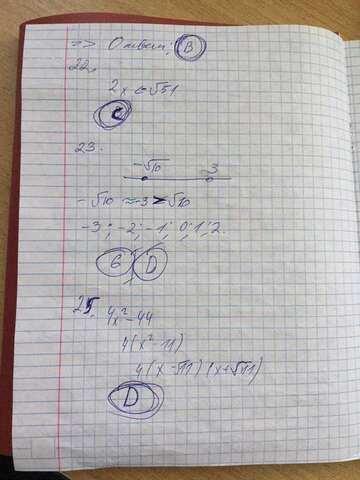 => Ответ: B
22.
C
23.
-√10 3
-√10 ≈ -3 > √10
-3; -2; -1; 0; 1; 2.
6 D
25. 4x²-44
4(x²-11)
4(x-√11)(x+√11)
D